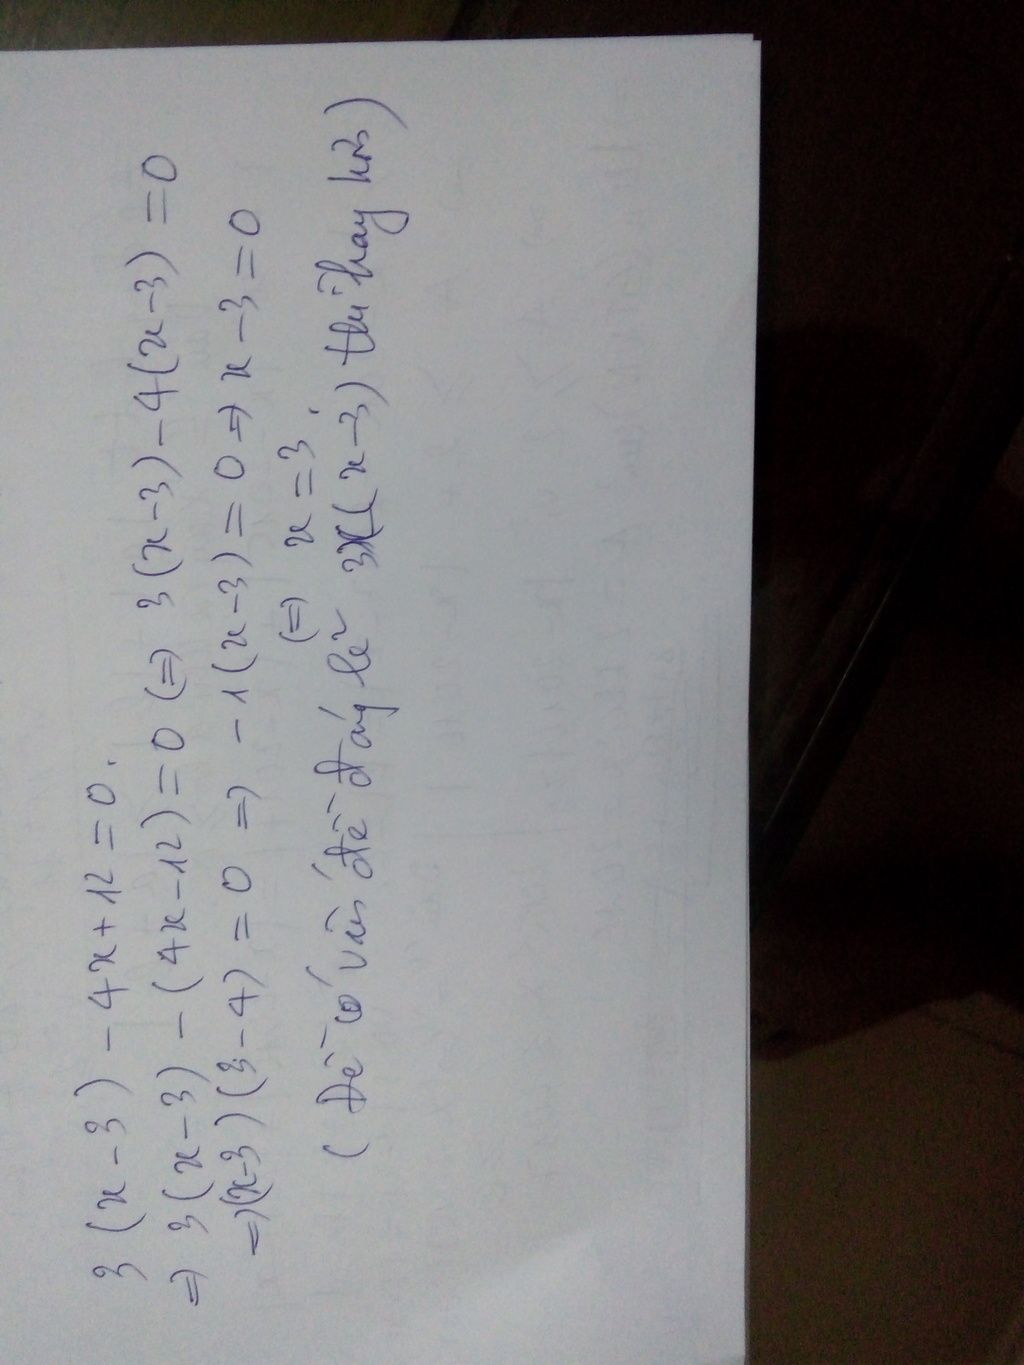 3(x-3) - 4x + 12 = 0.
=> 3(x-3) - (4x-12) = 0 (=) 3(x-3) - 4(x-3) = 0
=> (x-3)(3-4) = 0 => -1(x-3) = 0 => x-3 = 0
(=) x = 3.
(Đề có vấn đề đáng lẽ 3x(x-3) thì hay hơn)